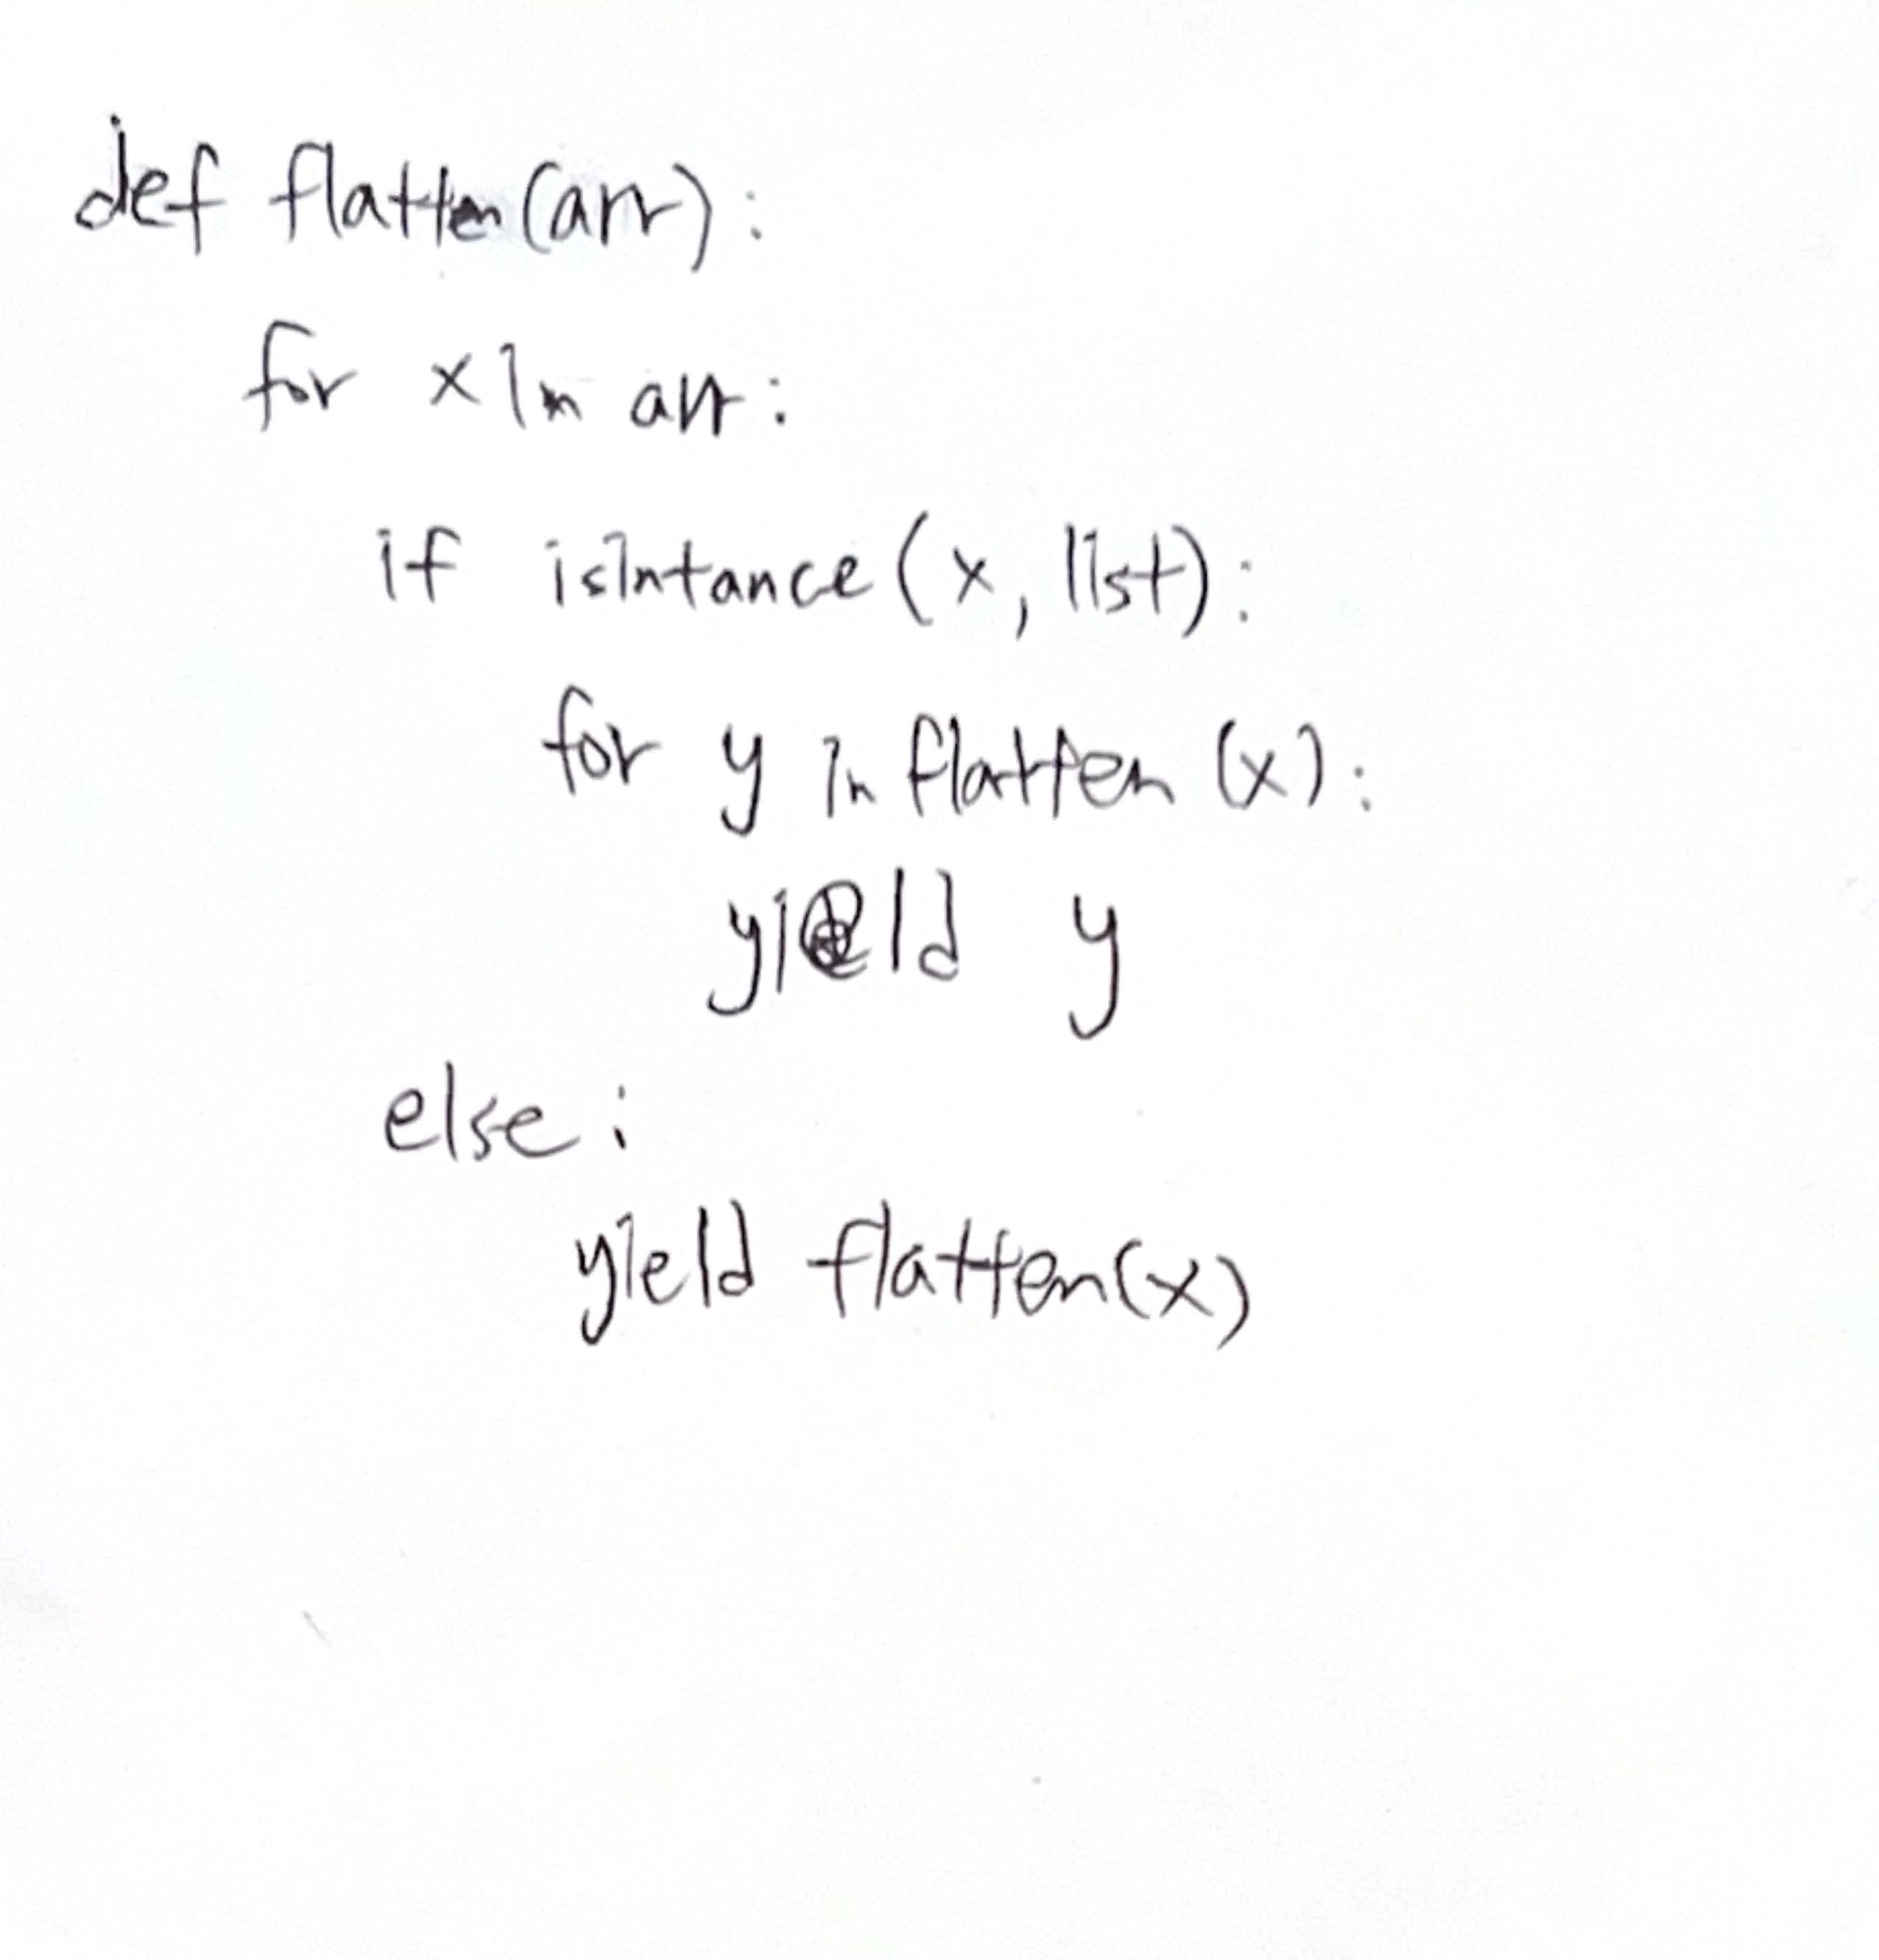 def flatten(arr):
for x in arr:
if isintance(x, list):
for y in flatten (x):
yield y
else:
yield flatten(x)